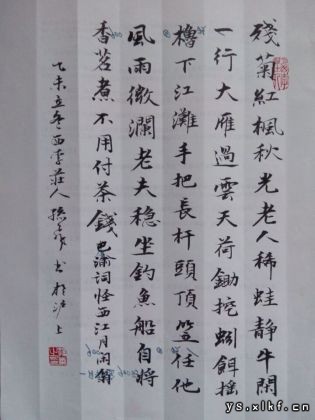 殘菊紅楓秋光老人稀蛙靜牛閑
一行大雁過雲天荷鋤挖蚓餌搖
櫓下江灘手把長杆頭頂笠任他
風雨微瀾老夫穩坐釣魚船自將
香茗煮不用付茶錢 巴渝詞怪西江月閑翁
乙未立冬西李莊人
书於沪上
ys.xlkf.cn